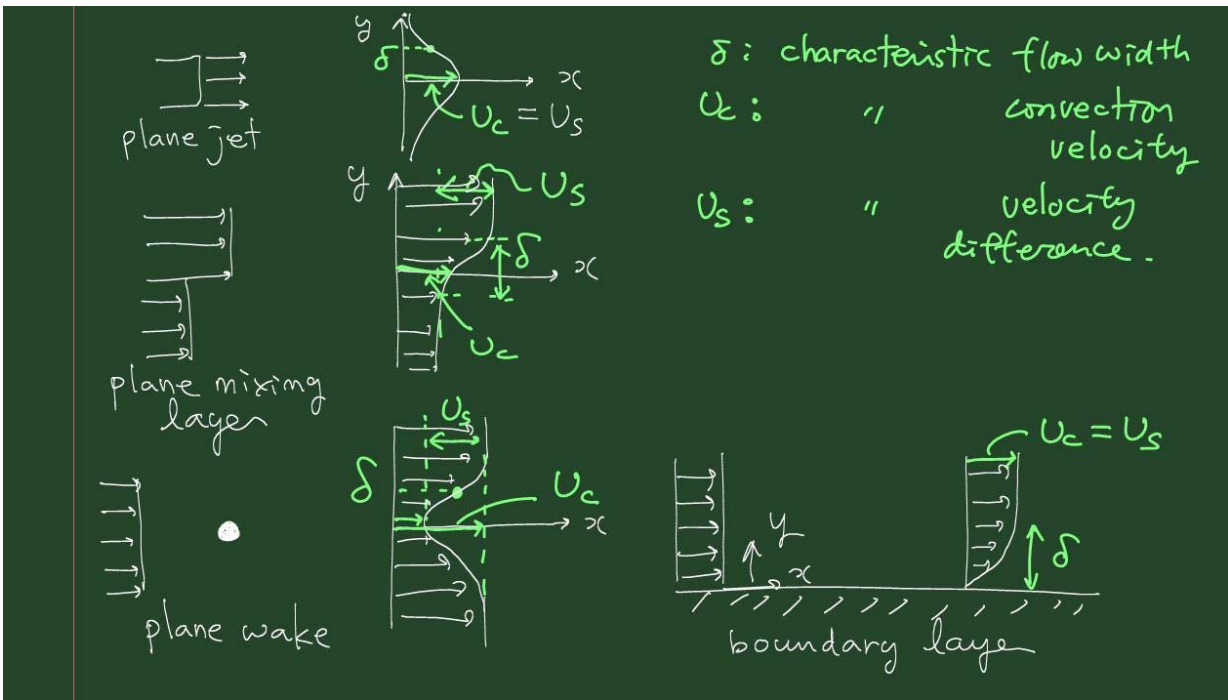 y
δ
x
U_c = U_s
plane jet
δ : characteristic flow width
U_c : 〃 convection
velocity
U_s : 〃 velocity
difference.
y
U_s
δ
x
U_c
plane mixing
layer
U_s
δ
U_c
x
plane wake
U_c = U_s
y
x
δ
boundary layer